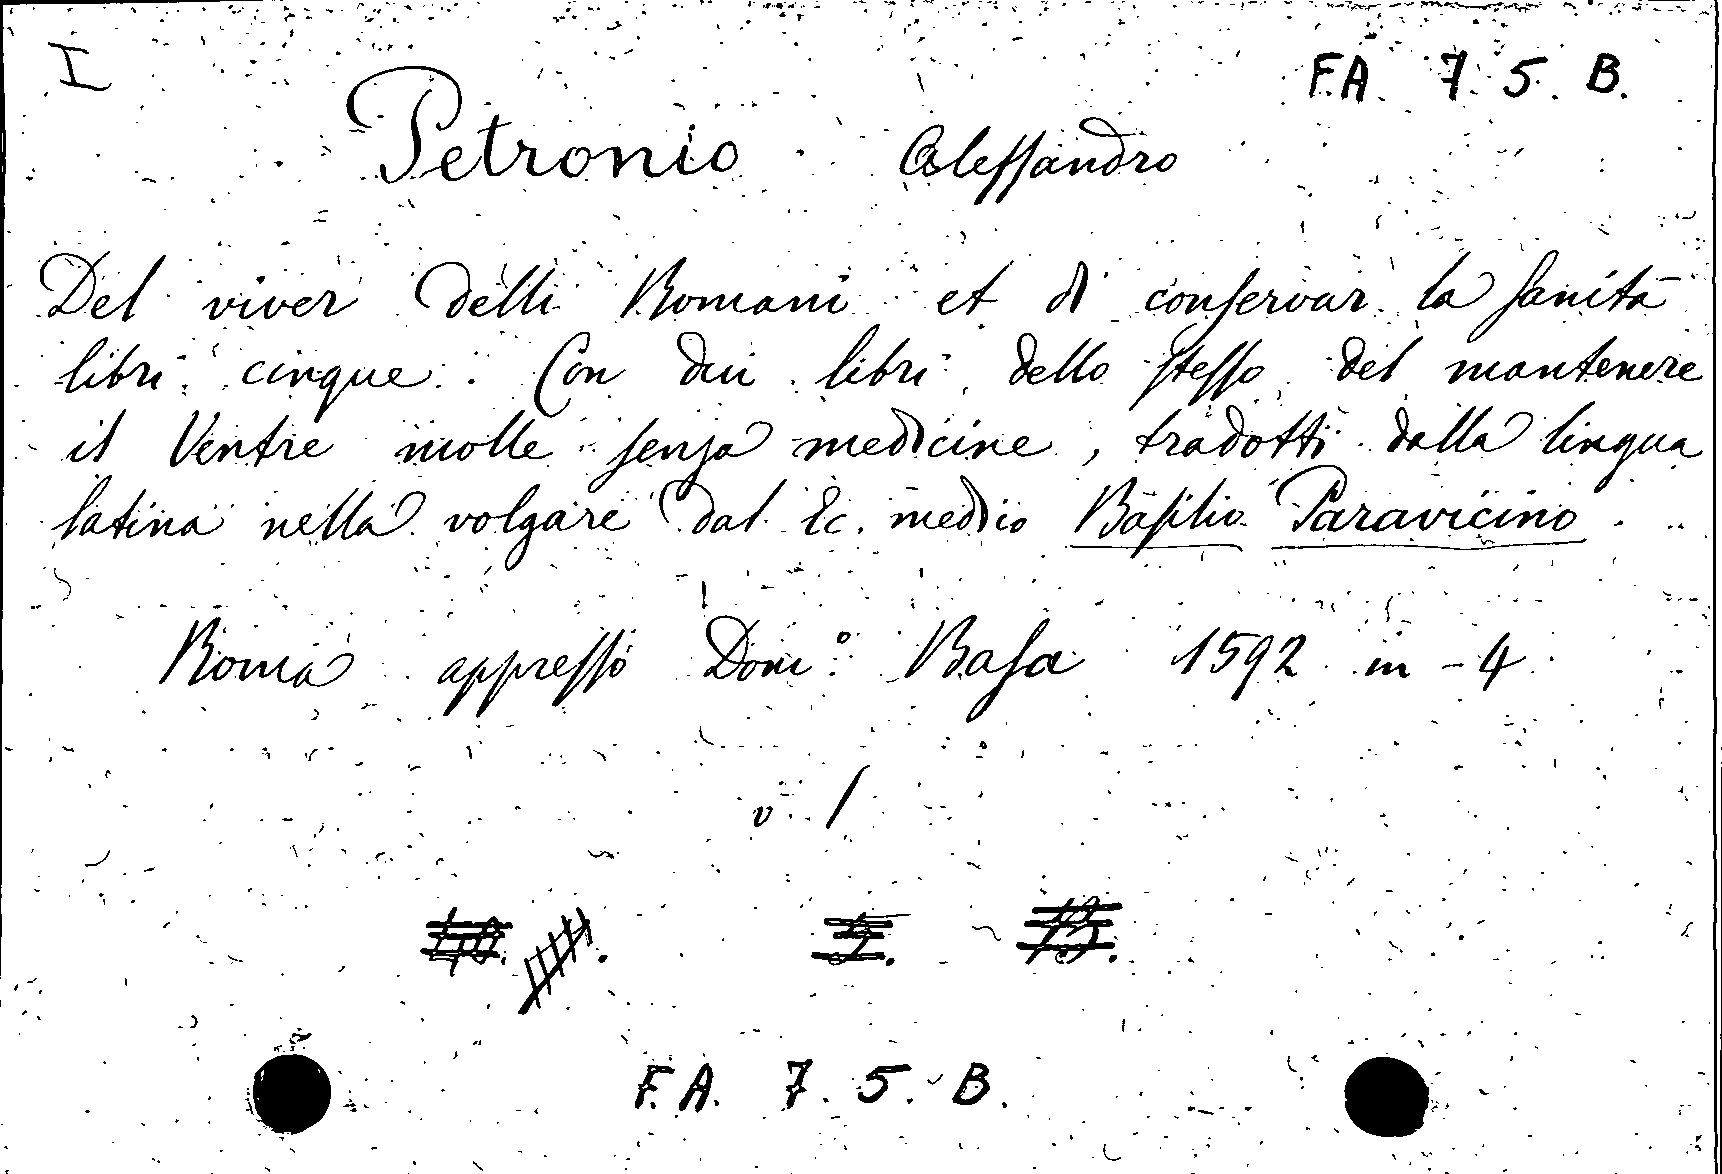 I
F.A. 7. 5. B.
Petronio Alessandro
Del viver delli Romani et di conservar la sanità
libri cinque. Con dui libri dello stesso del mantenere
il Ventre molle senza medicine, tradotti dalla lingua
latina nella volgare dal Ec. medico Basilio Paravicino.
Roma appresso Dom.º Basa 1592 in-4
v. 1
F.A. 7. 5. B.